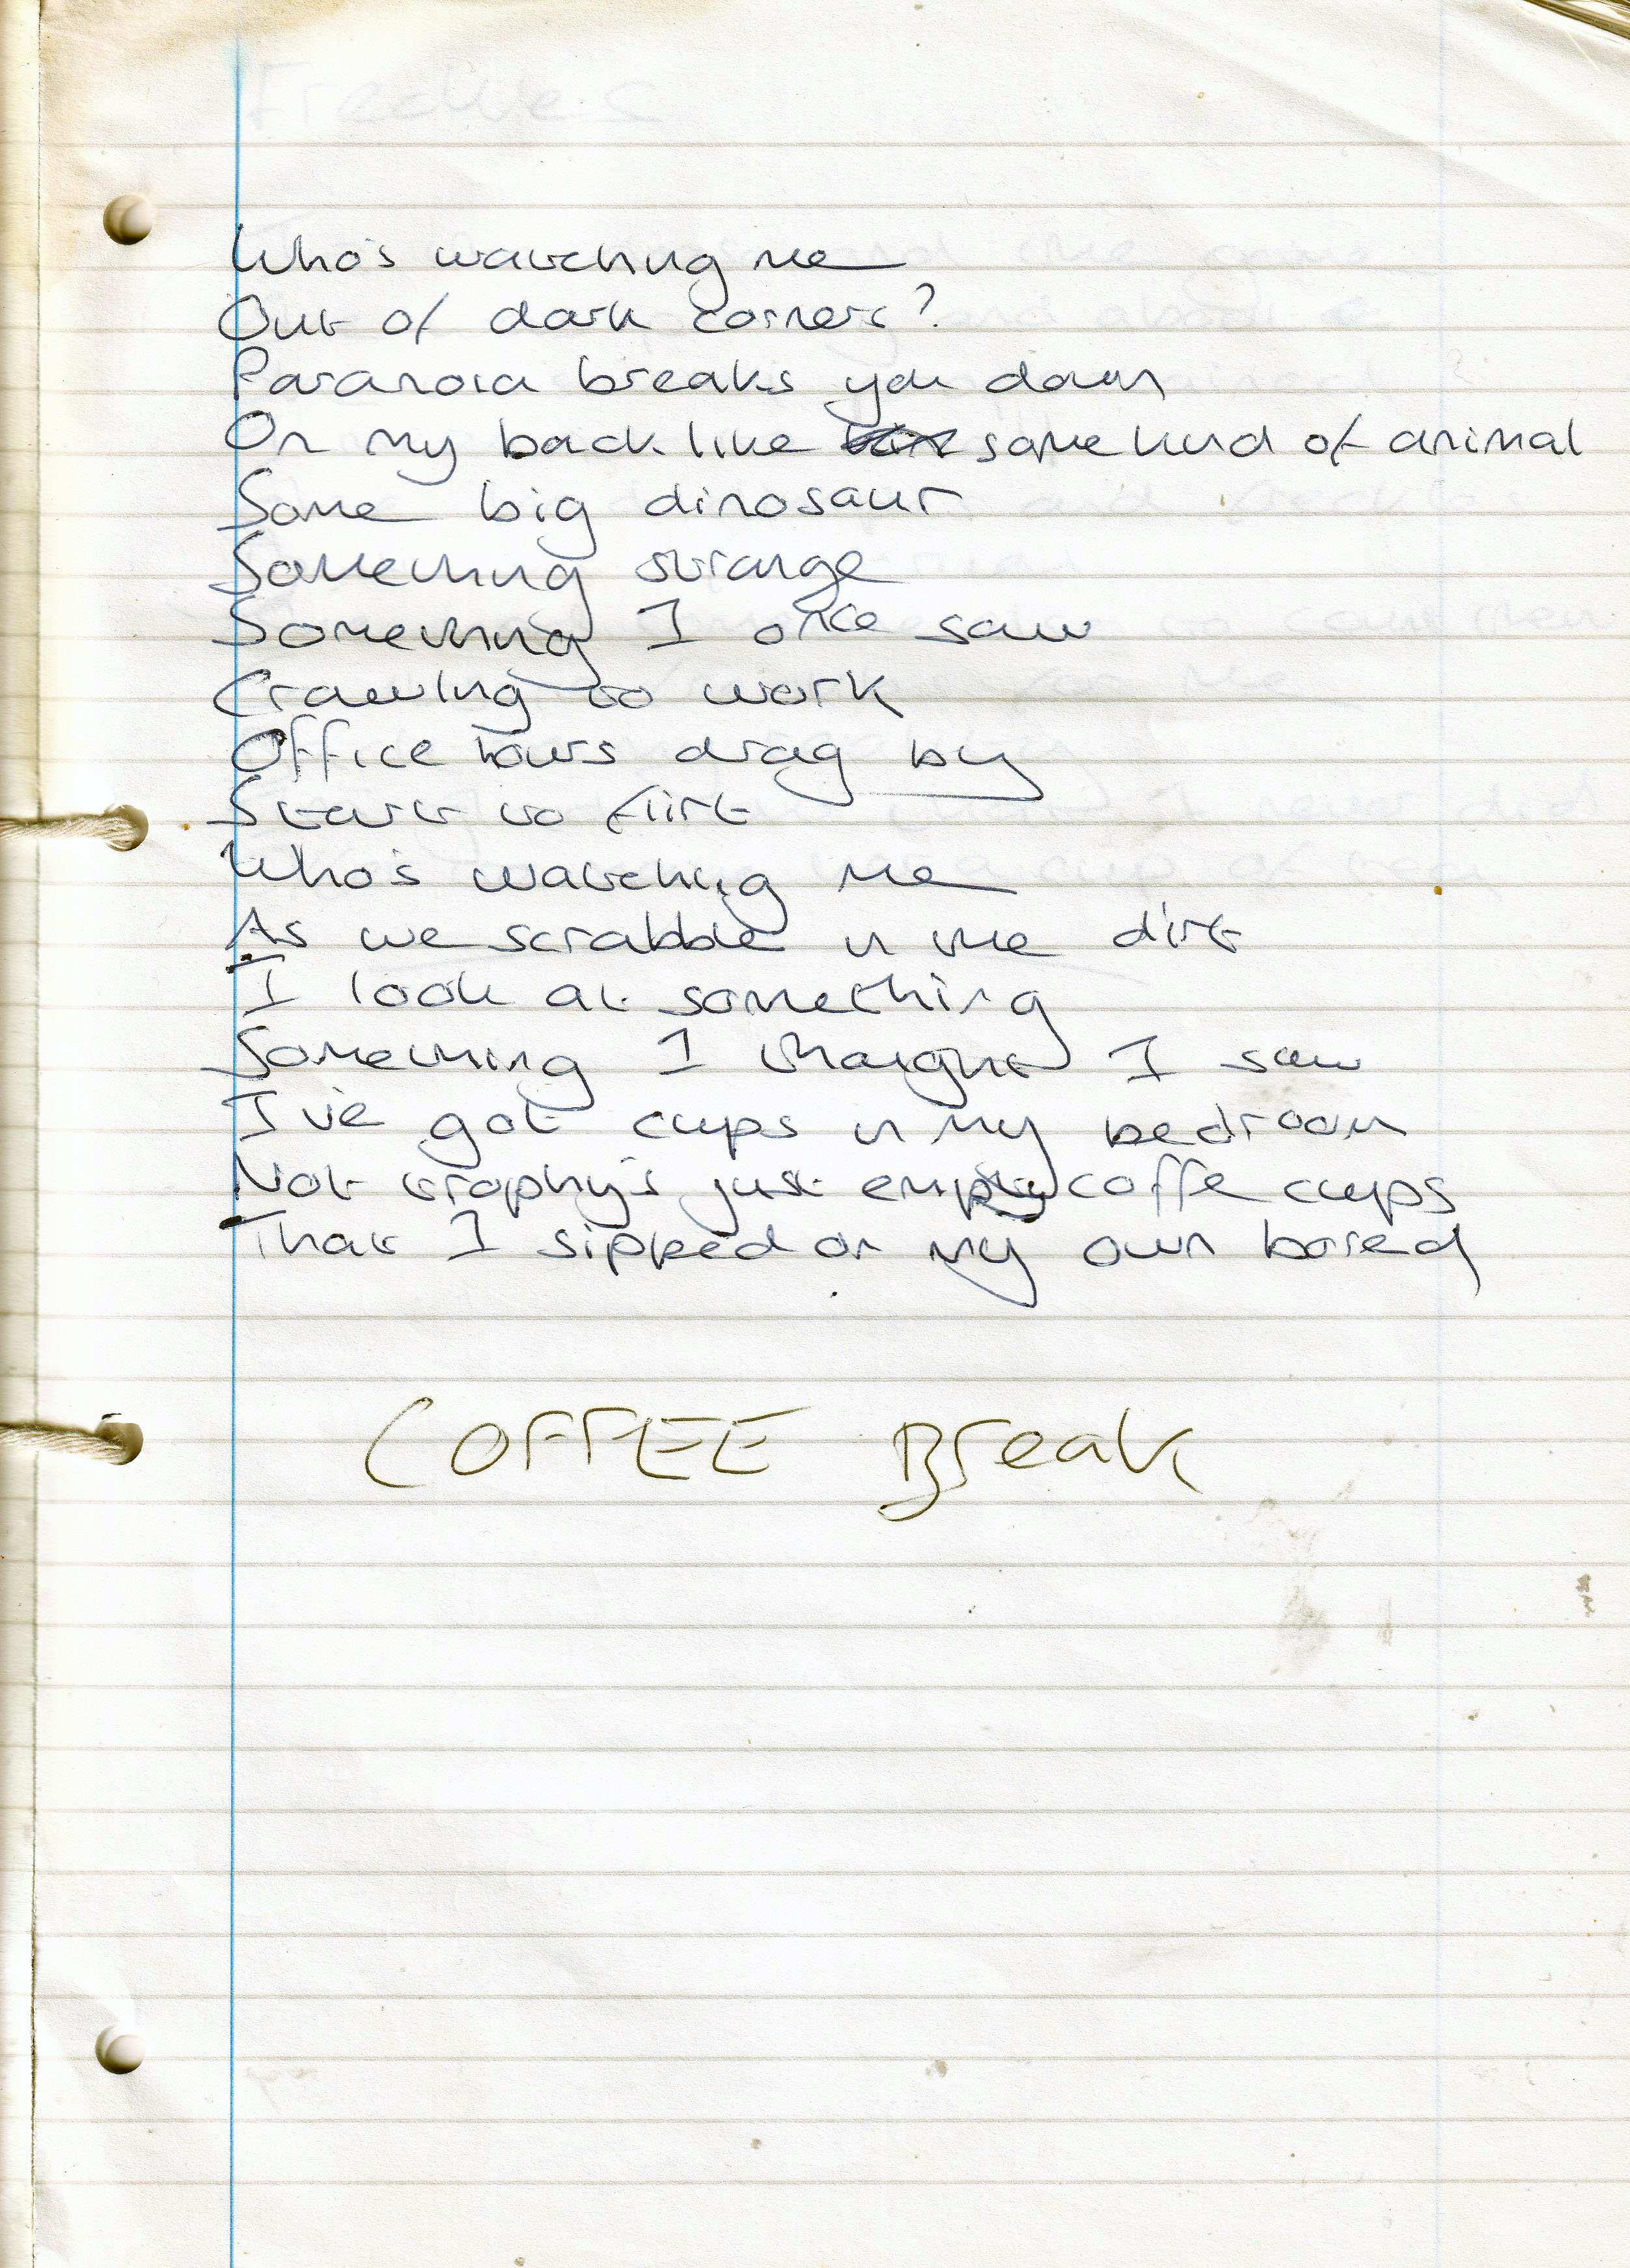 Who's watching me
Out of dark corners?
Paranoia breaks you down
On my back like some kind of animal
Some big dinosaur
Something strange
Something I once saw
Crawling to work
Office hours drag by
Start to flirt
Who's watching me
As we scrabble in the dirt
I look at something
Something I thought I saw
I've got cups in my bedroom
Not trophy's just empty coffe cups
That I sipped on my own bored
COFFEE Break